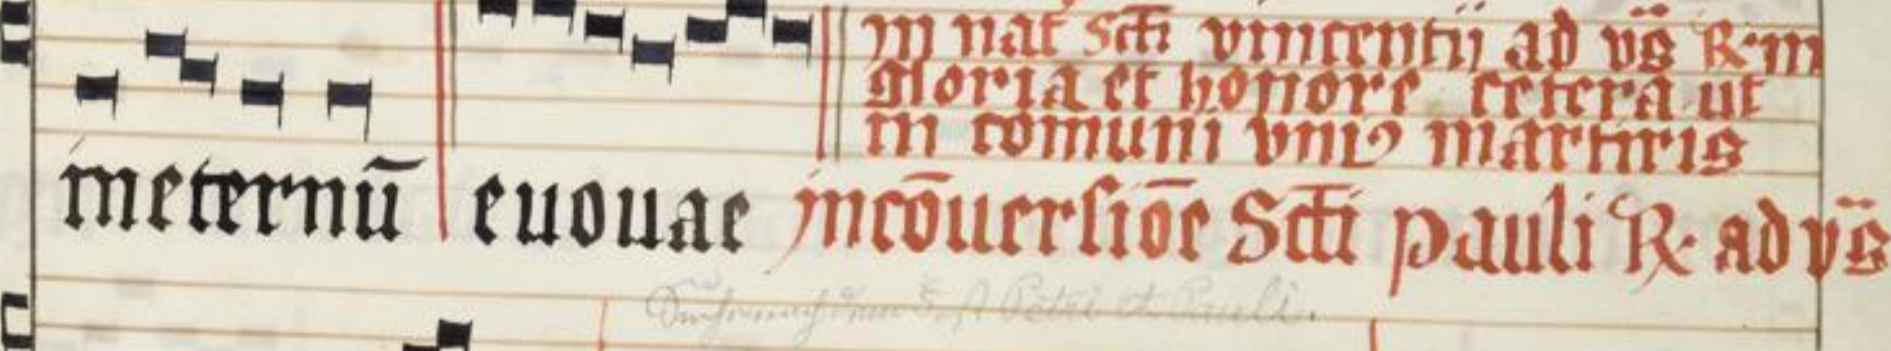 In nat̄ sct̄i vincentii ad vs̄ R. in
gloria et honore cetera ut
in comuni vniꝰ martiris
ineternū euouae inco̅uersio̅e Sct̄i pauli R. ad vs̄
Petri et Pauli.